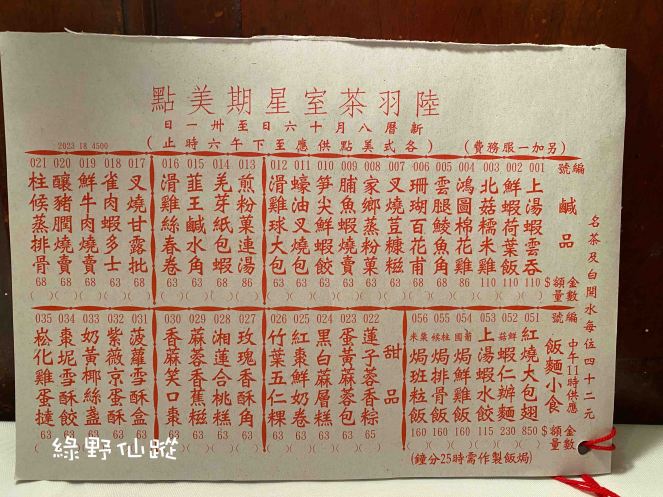 陸羽茶室星期美點
新曆八月十六日至卅一日
（另加一服務費）
（各式美點供應至下午六時止）
2023 18 4500
名茶及白開水每位四十二元
編號
鹹品
$金額
數量
001 上湯鮮蝦雲吞 110
002 鮮蝦荷葉飯 110
003 北菇糯米雞 110
004 鴻圖棉花雞 86
005 雲腿鱸魚角 68
006 珊瑚百花甫 68
007 叉燒荳糠糍 68
008 家鄉蒸粉菓 63
009 脯魚蝦燒賣 63
010 筍尖鮮蝦餃 63
011 蠔油叉燒包 63
012 滑雞球大包 63
013 煎粉菓連湯 68
014 芫荽紙包蝦 68
015 韮王鹹水角 63
016 滑雞絲春卷 63
017 叉燒甘露批 68
018 雀肉蝦多士 68
019 鮮牛肉燒賣 68
020 釀豬膶燒賣 68
021 柱候蒸排骨 68
編號
飯麵小食
中午11時供應
$金額
數量
051 紅燒大包翅 850
052 鮮菇蝦仁辦麵 230
053 上湯蝦水餃 115
054 焗鮮雞飯 160
055 焗排骨飯 160
056 焗班粒飯 160
（焗飯製作需時25分鐘）
甜品
022 蓮子蓉香粽 65
023 蛋黃蔴蓉包 63
024 黑白蔴層糕 63
025 紅棗鮮奶卷 63
026 竹葉五仁粿 63
027 玫瑰香酥角 63
028 湘蓮合桃糕 63
029 蔴蓉香蕉糍 63
030 香蔴笑口棗 63
031 菠蘿雪酥盒 63
032 紫薇京蛋酥 63
033 奶黃椰絲盞 63
034 棗坭雪酥餃 63
035 崧化雞蛋撻 63
綠野仙蹤